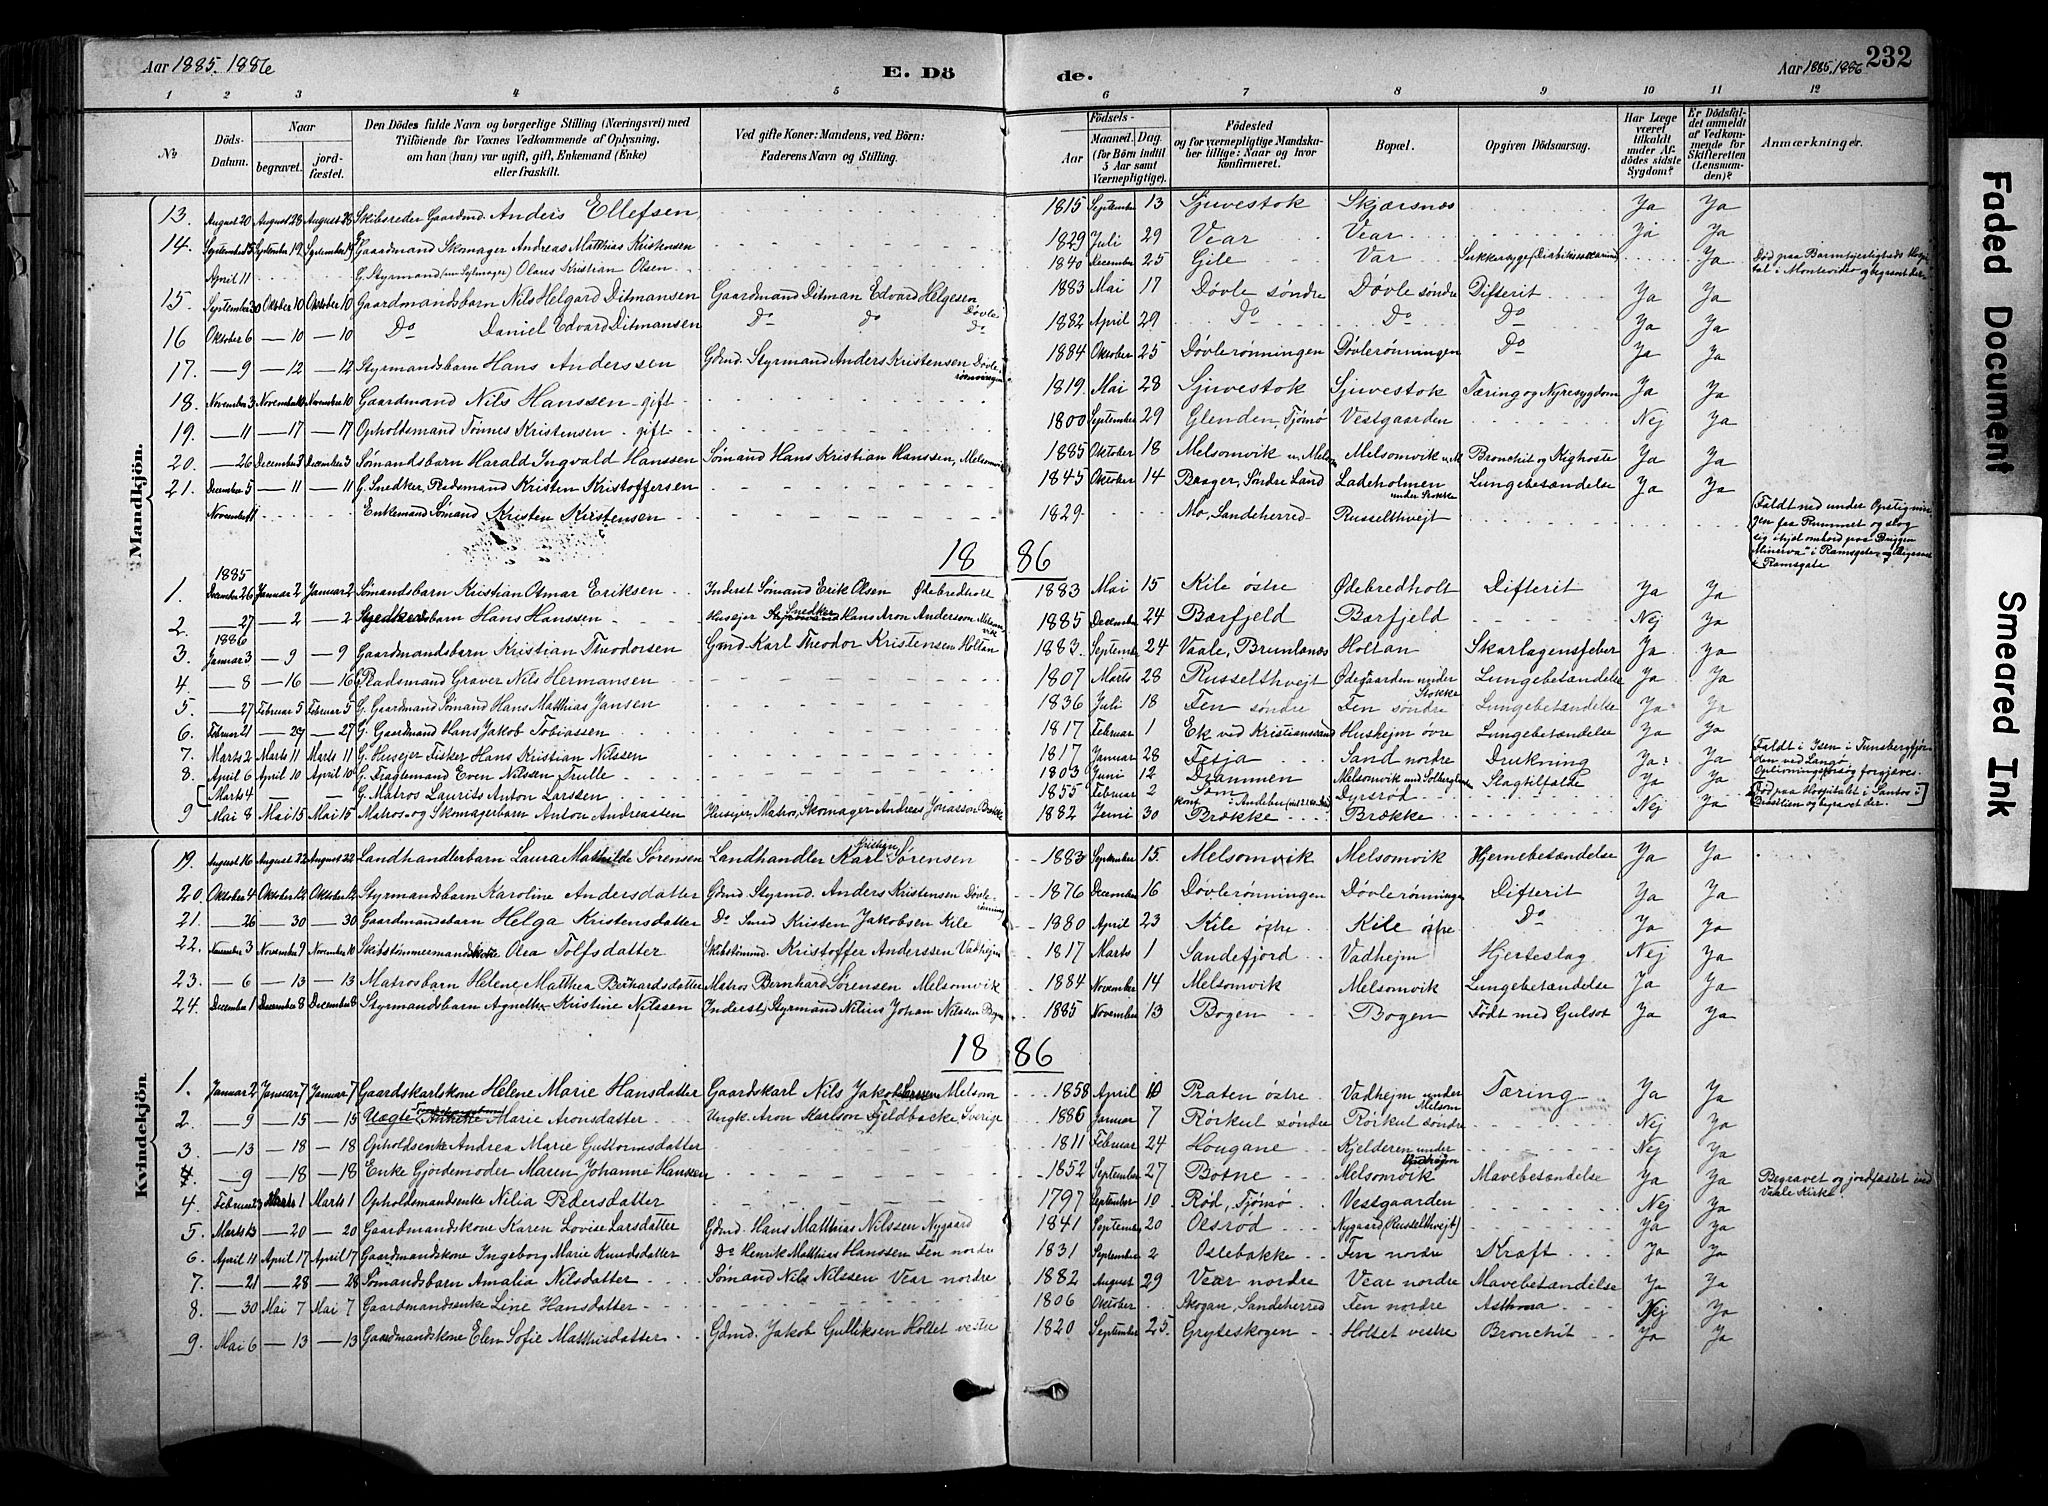 Aar 1885. 1886
E. Dö
de.
Aar 1885. 1886
232
1 2 3 4 5 6 7 8 9 10 11 12
No
Döds-Datum.
Naar
begravet.
jordfæstet.
Den Dödes fulde Navn og borgerlige Stilling (Næringsvei) med
Tilföiende for Voxnes Vedkommende af Oplysning,
om han (han) var ugift, gift, Enkemand (Enke)
eller fraskilt.
Ved gifte Koner: Mandens, ved Börn:
Faderens Navn og Stilling.
Födsels-
Aar
Maaned. Dag
(for Börn indtil 5 Aar samt Værnepligtige).
Födested
og for værnepligtige Mandskaber tillige: Naar og hvor konfirmeret.
Bopæl.
Opgiven Dödsaarsag.
Har Læge været tilkaldt under Afdödes sidste Sygdom?
Er Dödsfaldet anmeldt af Vedkommende for Skifteretten (Lensmanden)?
Anmærkninger.
Mandkjön.
13. August 20 August 28 August 28 Skibsreder Gaardmd. Anders Ellefsen, 1815 September 13 Sjuvestok Skjærsnæs Ja Ja
14. September 15 September 19 September 19 Gaardmand Skomager Andreas Matthias Kristensen 1829 Juli 29 Vear Vear Ja Ja
April 11 G. Styrmand Olaus Kristian Olsen 1840 December 25 Gile Var Sukkersyge Ja Død paa Barmhjertigheds Hospital i Montevideo og begravet der.
15 September 30 Oktober 10 Oktober 10 Gaardmandsbarn Nils Helgard Ditmansen Gaardmand Ditman Edvard Helgesen Døvle 1883 Mai 17 Døvle søndre Døvle søndre Difterit Ja Ja
16 Oktober 6 — 10 — 10 Do Daniel Edvard Ditmansen Do do do 1882 April 29 Do Do Do Ja Ja
17. — 9 — 12 — 12 Styrmandsbarn Hans Anderssen Gdmd. Styrmand Anders Kristensen Døvlerønningen 1884 Oktober 25 Døvlerønningen Døvlerønningen Do Ja Ja
18. November 3 November 10 November 10 Gaardmand Nils Hanssen - gift 1819. Mai 28 Sjuvestok Sjuvestok Tæring og Nyresygdom Ja Ja
19. — 11 — 17 — 17 Opholdsmand Tønnes Kristensen - gift 1800 September 29 Glenden, Tjømø Vestgaarden Nej Ja
20. — 26 December 3 December 3 Sømandsbarn Harald Ingvald Hanssen Sømand Hans Kristian Hanssen, Melsomvik 1885 Oktober 18 Melsomvik u. Melsom Melsomvik u. M Bronchit og Kighoste Ja Ja
21. December 5 — 11 — 11 G. Snedker, Pladsmand Kristen Kristoffersen 1845 Oktober 14 Baager, Søndre Land Ladeholmen under Stokke Lungebetændelse Ja Ja
November 11 Enkemand Sømand Kristen Kristensen 1829 Mo, Sandeherred Russelthvejt Faldt ned under Opstigningen fra Rummet og slog sig ihjel ombord paa Briggen "Minerva" i Ramsgate, begravet i Ramsgate
18 86
1885
1. December 26 Januar 2 Januar 2 Sømandsbarn Kristian Otmar Eriksen Inderst Sømand Erik Olsen Ødebredholt 1883 Mai 15 Kile østre Ødebredholt Difterit Ja Ja
2. — 27 — 2 — 2 Snedkersbarn Hans Hanssen Husejer Snedker Hans Aron Andersen Melsomvik 1885 December 24 Barfjeld Barfjeld Nej Ja
1886
3. Januar 3 — 9 — 9 Gaardmandsbarn Kristian Theodorsen Gmd. Karl Theodor Kristensen Holtan 1883. September 24 Vaale, Brunlanæs Holtan Skarlagensfeber Ja Ja
4 — 8 — 16 — 16 Pladsmand Graver Nils Hermansen 1807 Marts 28 Russelthvejt Ødegaarden under Stokke Lungebetændelse Ja Ja
5. — 27 Februar 5 Februar 5 G. Gaardmand Sømand Hans Matthias Jansen 1836 Juli 18 Fen søndre Fen søndre Lungebetændelse Ja Ja
6. Februar 21 — 27 — 27 G. Gaardmand Hans Jakob Tobiassen 1817 Februar 1 Ek ved Kristiansund Hushejm øvre Lungebetændelse Ja Ja
7. Marts 2 Marts 11 Marts 11 G. Husejer Fisker Hans Kristian Nilssen 1817 Januar 28 Fesja Sand nordre Drukning Ja Ja Faldt i Isen i Tunsbergfjorden ved Langø Oplivningsforsøg forgjæves.
8. April 6 April 10 April 10 G. Fragtemand Even Nilssen Trulle 1803 Juni 12 Drammen Melsomvik und Solberg Slagtilfælde Ja Ja
Marts 4 G. Matros Laurits Anton Larssen 1855 Februar 2 Søm Dyrsrød Død paa Hospitalet i Santos i Brasilien og begravet der.
9 Mai 8 Mai 15 Mai 15 Matros og Skomagerbarn Anton Andreassen Husejer, Matros, Skomager Andreas Jonasson Brække 1882 Juni 30 Brække Brække Nej Ja
Kvindekjön
19. August 16 August 22 August 22 Landhandlerbarn Laura Mathilde Sørensen Landhandler Karl Sørensen 1883 September 15. Melsomvik Melsomvik Hjernebetændelse Ja Ja
20. Oktober 4 Oktober 12 Oktober 12 Styrmandsbarn Karoline Andersdatter Gdmd Styrmd. Anders Kristensen Døvlerønning 1876 December 16 Døvlerønningen Døvlerønningen Difterit Ja Ja
21. — 26 — 30 — 30 Gaardmandsbarn Helga Kristensdatter Do Smed Kristen Jakobsen Kile 1880 April 23 Kile østre Kile østre Do Ja Ja
22. November 3 November 9 November 10 Skibstømmermandskone Olea Tolfsdatter Skibstømmd. Kristoffer Anderssen Vadhejm 1817 Marts 1 Sandefjord Vadhejm Hjerteslag Nej Ja
23. — 6 — 13 — 13 Matrosbarn Helene Matthea Bernhardsdatter Matros Bernhard Sørensen Melsomvik 1884 November 14 Melsomvik Melsomvik Lungebetændelse Ja Ja
24. December 1 December 8 December 8 Styrmandsbarn Agnethe Kristine Nilssen Inderst, Styrmand Nilius Johan Nilssen Bogen 1885 November 13 Bogen Bogen Født med Gulsot Ja Ja
18 86
1. Januar 2 Januar 7 Januar 7 Gaardskarlskone Helene Marie Hansdatter Gaardskarl Nils Jakob Larssen Melsom 1858 April 10 Praten østre Vadhejm under Melsom Tæring Ja Ja
2. — 9 — 15 — 15 Uægte Marie Aronsdatter Ungk. Aron Karlson Fjeldbacke, Sverige 1886 Januar 7 Rørkul søndre Rørkul søndre Nej Ja
3. — 13 — 18 — 18 Opholdsenke Andrea Marie Guttormsdatter 1811 Februar 24 Hougane Kjelderen under Nej Ja
4. — 9 — 18 — 18 Enke Gjordemoder Maren Johanne Hanssen 1852 September 27 Botne Melsomvik Mavebetændelse Ja Ja Begravet og jordfæstet ved Vaale Kirke.
4 Februar 23 Marts 1 Marts 1 Opholdsmandsenke Nilia Pedersdatter 1797 September 10 Rød, Tjømø Vestgaarden Nej Ja
5. Marts 13 — 20 — 20 Gaardmandskone Karen Lovise Larsdatter Gdmd. Hans Matthias Nilssen Nygaard 1841 September 20 Olsrød Nygaard (Russelthvejt) Ja Ja
6. April 11 April 17 April 17 Gaardmandskone Ingeborg Marie Knudsdatter Do Henrik Matthias Hanssen Fen nordre 1831 September 2 Ostebakke Fen nordre Kræft Ja Ja
7. — 21 — 28 — 28 Sømandsbarn Amalia Nilsdatter Sømand Nils Nilssen Vear nordre 1882 August 29 Vear nordre Vear nordre Mavebetændelse Ja Ja
8. — 30 Mai 7 Mai 7 Gaardmandsenke Line Hansdatter 1806 Oktober Skogan, Sandeherred Fen nordre Asthma Nej Ja
9. Mai 6 — 13 — 13 Gaardmandskone Elen Sofie Matthisdatter Gdmd. Jakob Gulliksen Holtet vestre 1820 September 25. Gryteskogen Holtet vestre Bronchit Ja Ja
Faded Document
Smeared Ink